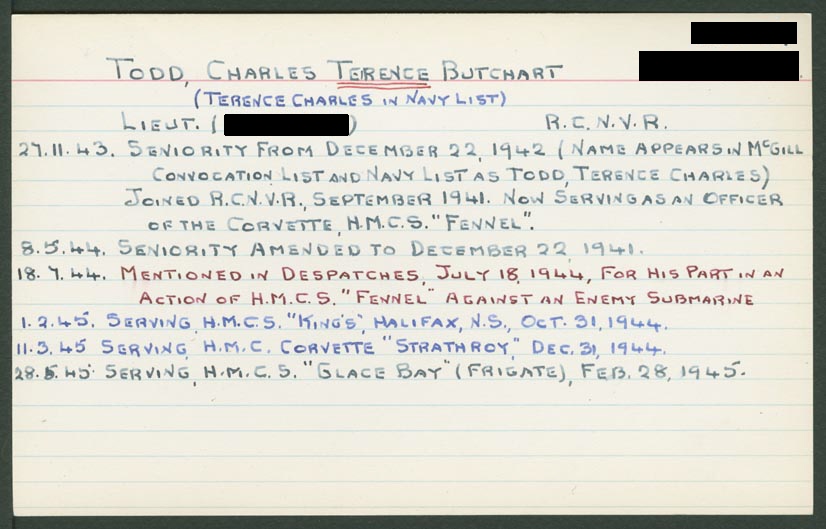 TODD, CHARLES TERENCE BUTCHART
(TERENCE CHARLES IN NAVY LIST)
LIEUT. ( ) R.C.N.V.R.
27.11.43. SENIORITY FROM DECEMBER 22, 1942 (NAME APPEARS IN McGILL
CONVOCATION LIST AND NAVY LIST AS TODD, TERENCE CHARLES)
JOINED R.C.N.V.R., SEPTEMBER 1941. NOW SERVING AS AN OFFICER
OF THE CORVETTE, H.M.C.S. "FENNEL".
8.5.44. SENIORITY AMENDED TO DECEMBER 22, 1941.
18.7.44. MENTIONED IN DESPATCHES, JULY 18, 1944, FOR HIS PART IN AN
ACTION OF H.M.C.S. "FENNEL" AGAINST AN ENEMY SUBMARINE
1.2.45. SERVING, H.M.C.S. "KING'S", HALIFAX, N.S., OCT. 31, 1944.
11.3.45 SERVING, H.M.C. CORVETTE "STRATHROY," DEC. 31, 1944.
28.5.45. SERVING, H.M.C.S. "GLACE BAY" (FRIGATE), FEB. 28, 1945.